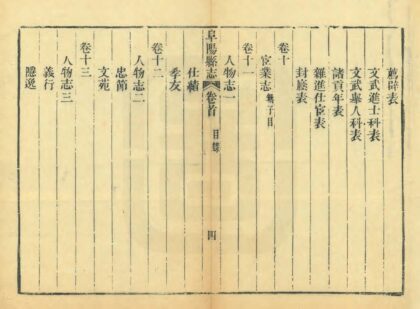 薦辟表
文武進士科表
文武舉人科表
諸貢年表
雜進仕宦表
封廕表
卷十
宦業志 無子目
卷十一
人物志一
阜陽縣志 卷首 目錄 四
仕績
孝友
卷十二
人物志二
忠節
文苑
卷十三
人物志三
義行
隱逸